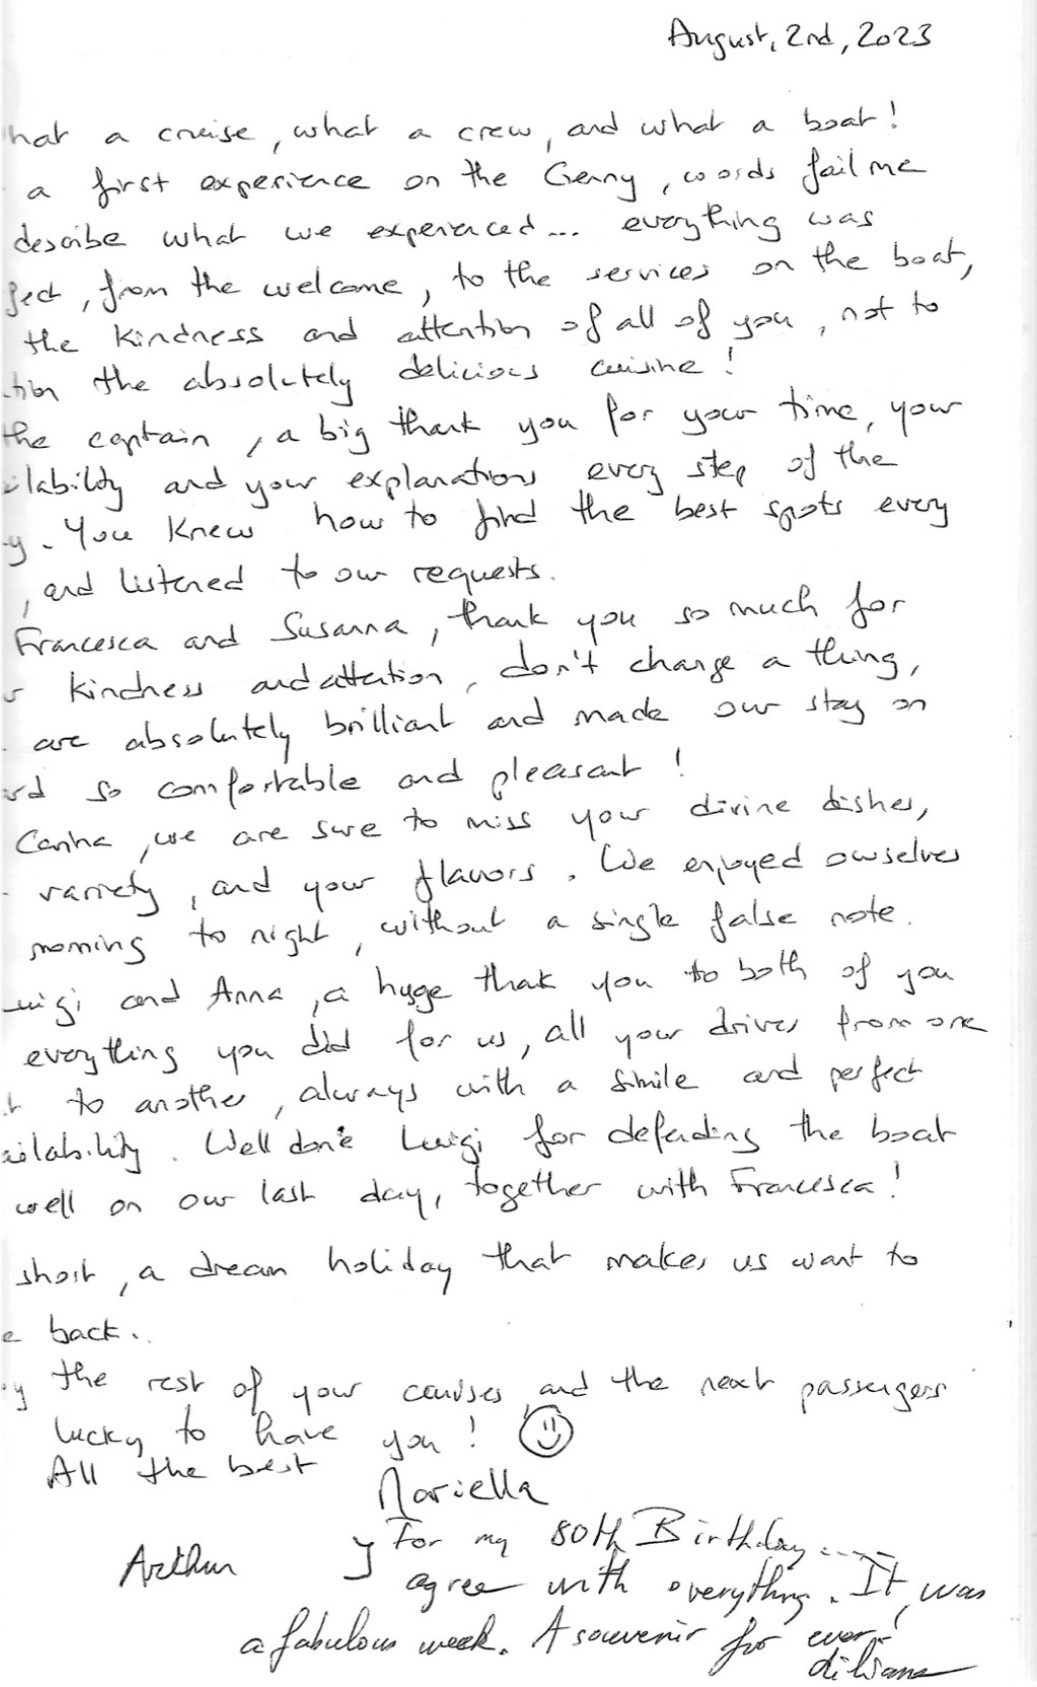 August, 2nd, 2023
hat a cruise, what a crew, and what a boat!
a first experience on the Genny, words fail me
describe what we experienced... everything was
fect, from the welcome, to the services on the boat,
the kindness and attention of all of you, not to
tion the absolutely delicious cuisine!
the captain, a big thank you for your time, your
ilability and your explanations every step of the
y. You knew how to find the best spots every
, and listened to our requests.
Francesca and Susanna, thank you so much for
r kindness and attention, don't change a thing,
are absolutely brilliant and made our stay on
ard so comfortable and pleasant!
we are sure to miss your divine dishes,
variety, and your flavors. We enjoyed ourselves
morning to night, without a single false note.
uigi and Anna, a huge thak you to both of you
everything you did for us, all your drives from one
t to another, always with a smile and perfect
ailability. Well done Luigi for defending the boat
well on our last day, together with Francesca!
short, a dream holiday that makes us want to
e back..
y the rest of your cruises and the next passengers
lucky to have you!
All the best
Mariella
Arthur
For my 80th Birthday.....
agree with everything. It was
a fabulous week. A souvenir for ever!